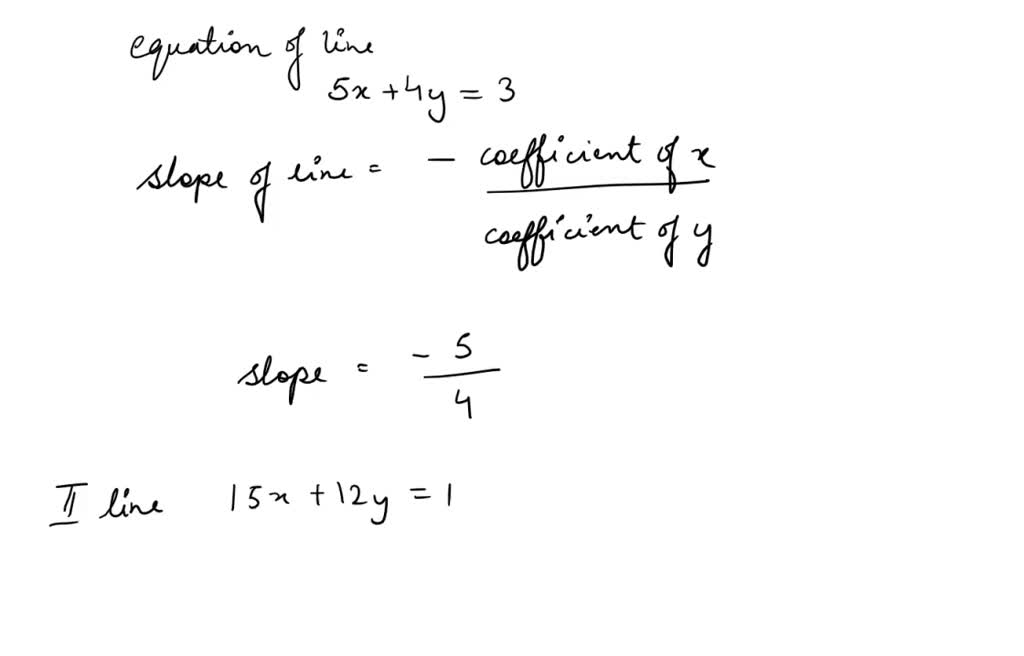 equation of line
5x + 4y = 3
slope of line = - coefficient of x
coefficient of y
slope = - 5
4
II line 15x + 12y = 1